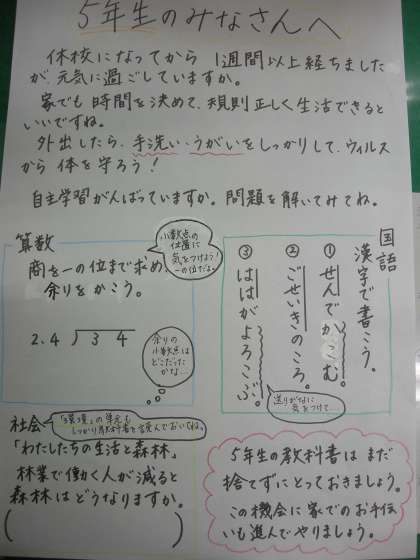 5年生のみなさんへ
休校になってから 1週間以上経ちました
が、元気に過ごしていますか。
家でも時間を決めて、規則正しく生活できると
いいですね。
外出したら、手洗い・うがいをしっかりして、ウィルス
から体を守ろう！
自主学習がんばっていますか。問題を解いてみてね。
算数
商を一の位まで求め、
余りをかこう。
小数点の
位置に
気をつけよう！
一の位だよ。
2.4 34
余りの
小数点は
どこだったか
かな…
国語
漢字で書こう。
①せんでかこむ。
②ごせいきのころ。
③ははがよろこぶ。
送りがなに
気をつけて…
社会
「環境」の単元も
しっかり教科書を読んでおいてね。
「わたしたちの生活と森林」
林業で働く人が減ると
森林はどうなりますか。
(　　　)
5年生の教科書はまだ
捨てずにとっておきましょう。
この機会に家でのお手伝
いも進んでやりましょう。